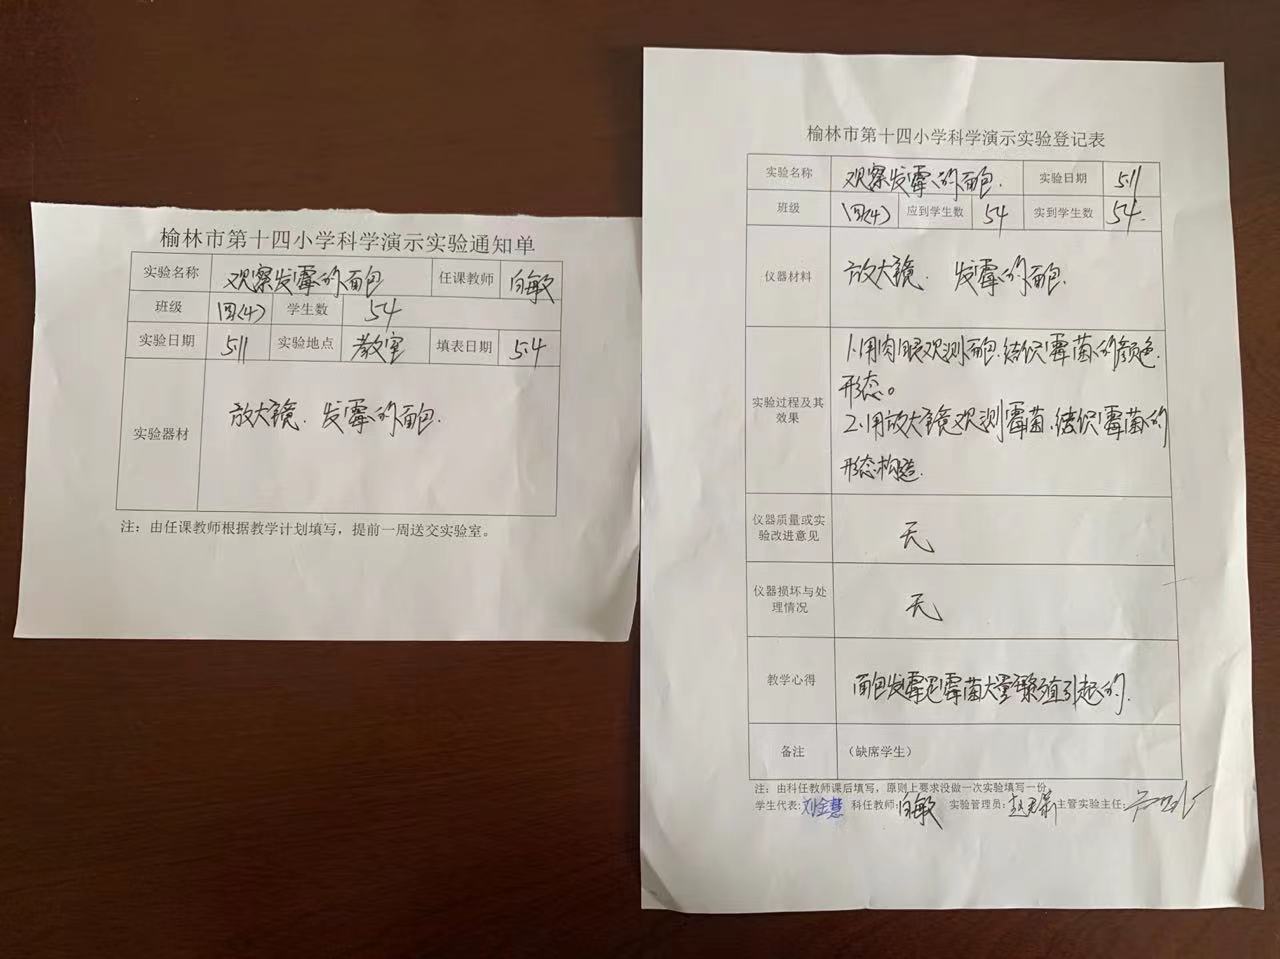 榆林市第十四小学科学演示实验通知单
实验名称 观察发霉的面包 任课教师 白敏
班级 四(4) 学生数 54
实验日期 5.11 实验地点 教室 填表日期 5.4
实验器材 放大镜. 发霉的面包.
注：由任课教师根据教学计划填写，提前一周送交实验室。
榆林市第十四小学科学演示实验登记表
实验名称 观察发霉的面包. 实验日期 5.11
班级 四(4) 应到学生数 54 实到学生数 54.
仪器材料 放大镜. 发霉的面包.
实验过程及其效果
1.用肉眼观测面包.结识霉菌的颜色.
形态。
2.用放大镜观测霉菌.结识霉菌的
形态构造.
仪器质量或实验改进意见 无
仪器损坏与处理情况 无
教学心得 面包发霉是霉菌大量繁殖引起的.
备注 （缺席学生）
注：由科任教师课后填写，原则上要求没做一次实验填写一份。
学生代表:刘金慧 科任教师:白敏 实验管理员: 主管实验主任: